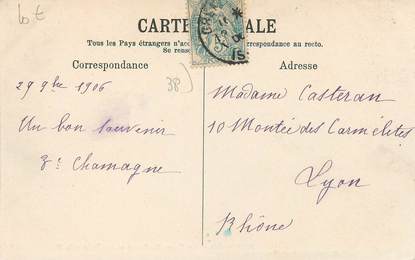 lot
CARTE POSTALE
Tous les Pays étrangers n'acc correspondance au recto.
Se rense
Correspondance
Adresse
38)
29 9bre 1906
Un bon souvenir
Chamagne
Madame Casteran
10 Montée des Carmélites
Lyon
Rhône